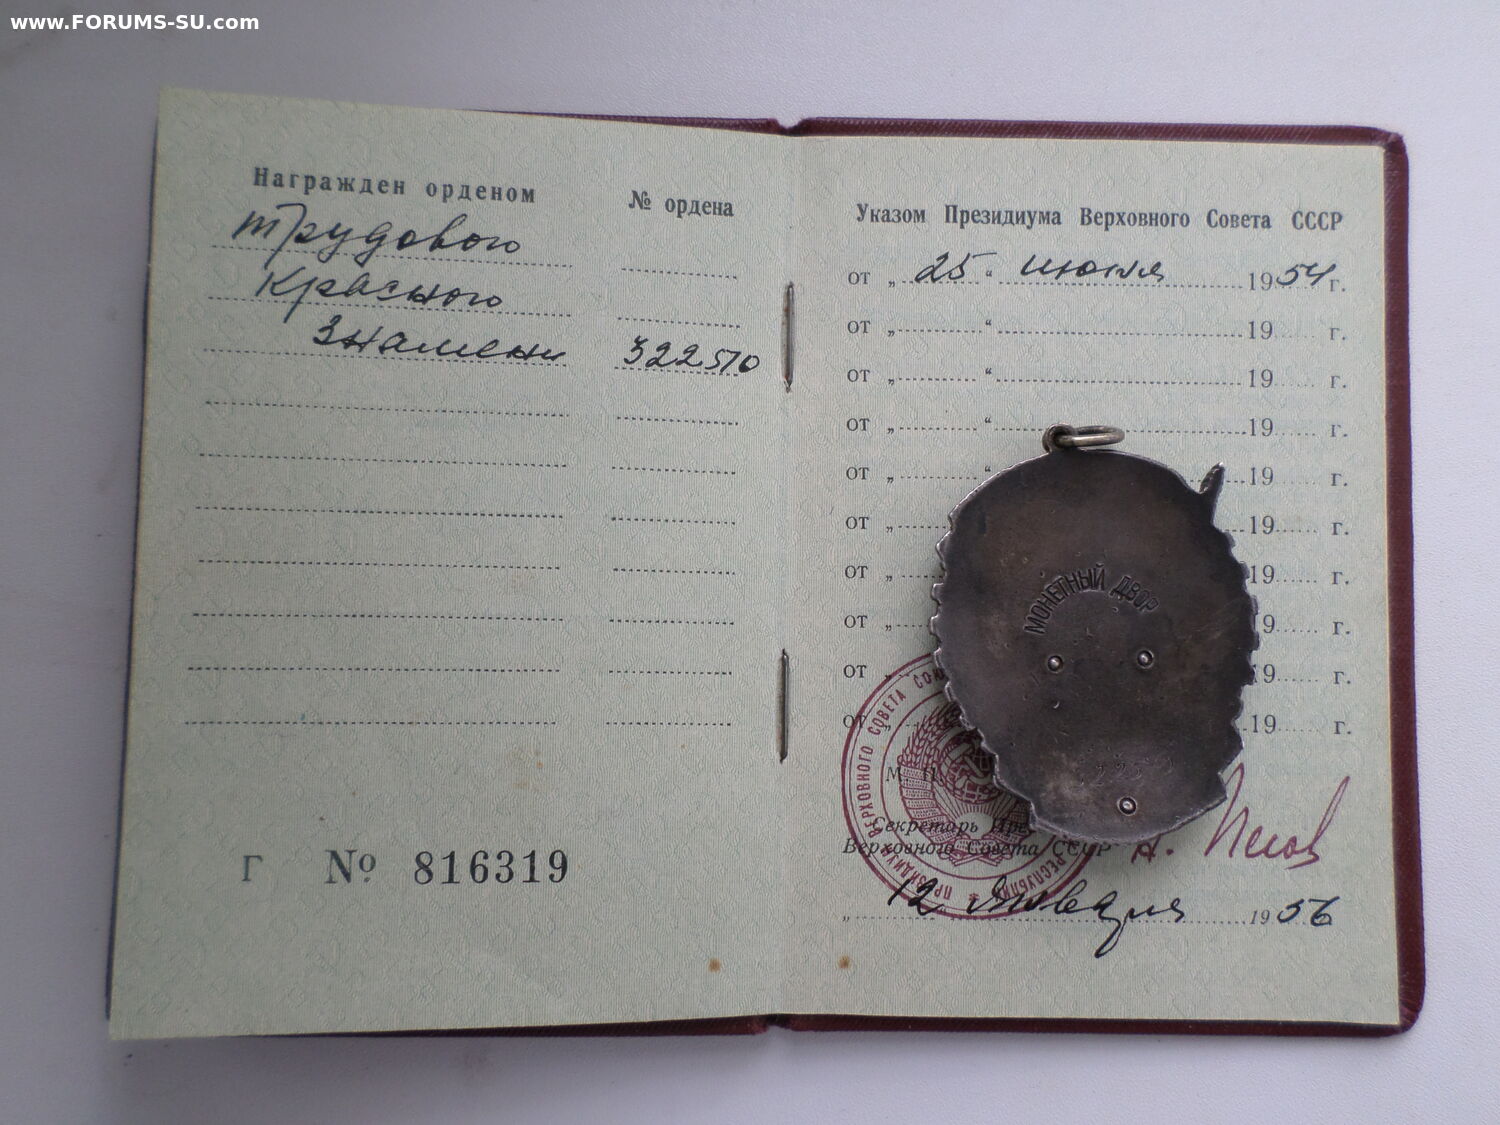 www.FORUMS-SU.com
Награжден орденом № ордена
Трудового
Красного
Знамени 322570
Г № 816319
Указом Президиума Верховного Совета СССР
от „ 25 “ июня 1954 г.
от „ “ 19 г.
от „ “ 19 г.
от „ “ 19 г.
от „ “ 19 г.
от „ 19 г.
от „ 19 г.
от „ 19 г.
от 19 г.
от „ 19 г.
МОНЕТНЫЙ ДВОР
ПРЕЗИДИУМ ВЕРХОВНОГО СОВЕТА
М.
Секретарь
Верховного Совета СССР
„ 12 января 1956